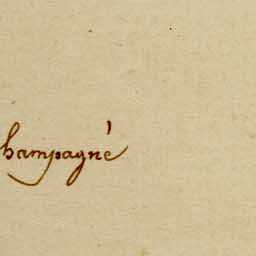 hampagné